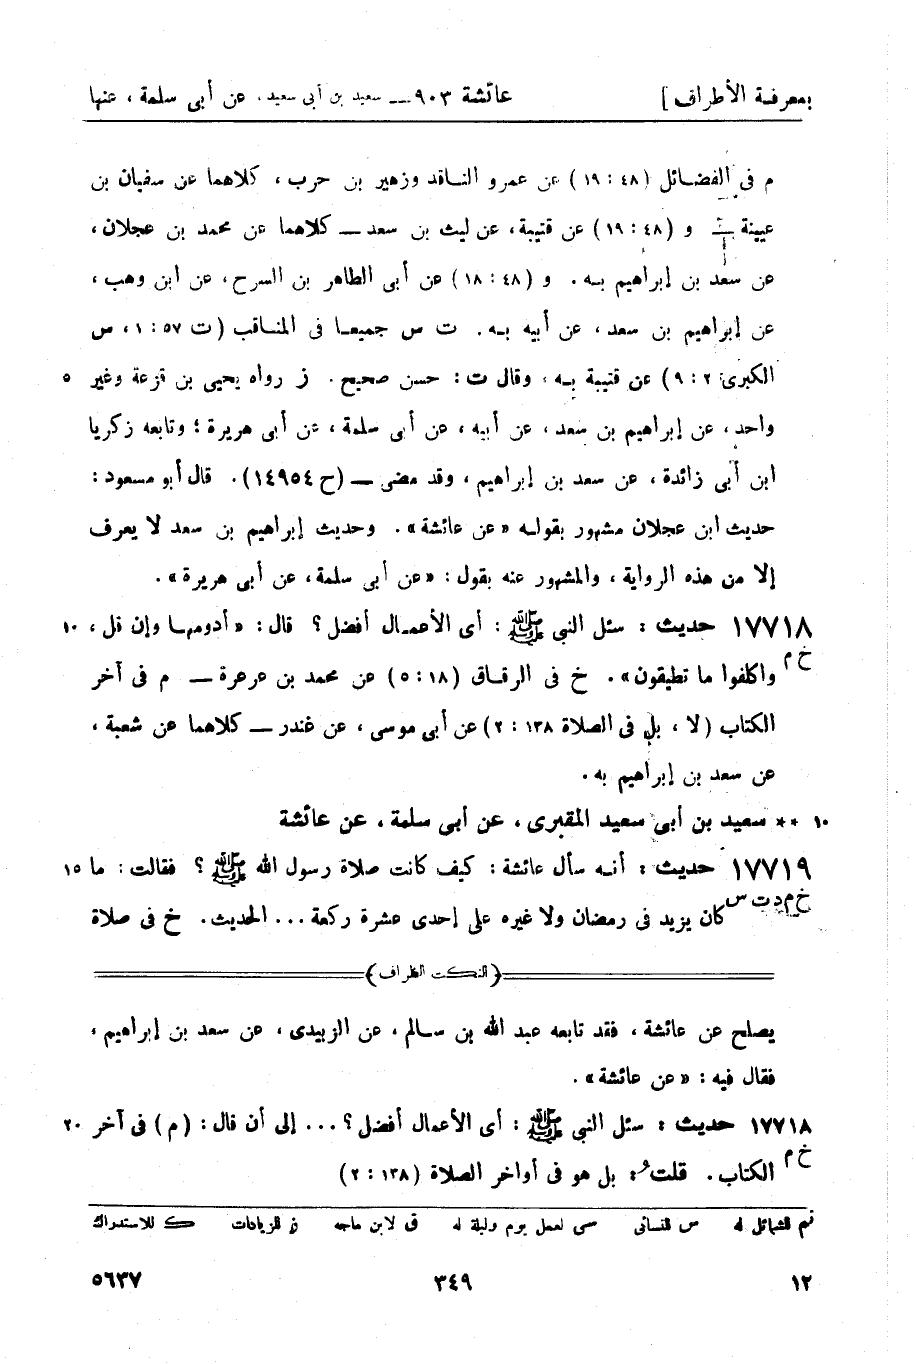 بمعرفة الأطراف ] عائشة ٩٠٣ ـــ سعيد بن أبى سعيد، عن أبى سلمة ، عنها
م فى الفضائل (٤٨ : ١٩) عن عمرو الناقد وزهير بن حرب ، كلاهما عن سفيان بن
عيينة ــ و (٤٨ : ١٩) عن قتيبة، عن ليث بن سعد ـــ كلاهما عن محمد بن عجلان ،
عن سعد بن إبراهيم به . و (٤٨ : ١٨) عن أبى الطاهر بن السرح، عن ابن وهب ،
عن إبراهيم بن سعد ، عن أبيه به. ت س جميعا فى المناقب (ت ٥٧ : ١، س
الكبرى ٢ : ٩) عن قتيبة به ، وقال ت : حسن صحيح . ز رواه يحيى بن قزعة وغير ٥
واحد ، عن إبراهيم بن سعد ، عن أبيه ، عن أبى سلمة ، عن أبى هريرة ؛ وتابعه زكريا
ابن أبى زائدة ، عن سعد بن إبراهيم ، وقد مضى ـــ (ح ١٤٩٥٤). قال أبو مسعود :
حديث ابن عجلان مشهور بقوله «عن عائشة». وحديث إبراهيم بن سعد لا يعرف
إلا من هذه الرواية ، والمشهور عنه بقول : «عن أبى سلمة، عن أبى هريرة».
١٧٧١٨ حديث : سئل النبى ﷺ : أى الأعمال أفضل ؟ قال : «أدومها وإن قل ، ١٠
خ م واكلفوا ما تطيقون». خ فى الرقاق (١٨ : ٥) عن محمد بن عرعرة ـــ م فى آخر
الكتاب (لا ، بل فى الصلاة ١٣٨ : ٢) عن أبى موسى ، عن غندر ـــ كلاهما عن شعبة ،
عن سعد بن إبراهيم به .
١٠ ** سعيد بن أبى سعيد المقبرى، عن أبى سلمة ، عن عائشة
١٧٧١٩ حديث : أنه سأل عائشة : كيف كانت صلاة رسول الله ﷺ ؟ فقالت : ما ١٥
خ م د ت س كان يزيد فى رمضان ولا غيره على إحدى عشرة ركعة ... الحديث . خ فى صلاة
(النكت الظراف)
يصلح عن عائشة ، فقد تابعه عبد الله بن سالم ، عن الزبيدى ، عن سعد بن إبراهيم ،
فقال فيه : «عن عائشة».
١٧٧١٨ حديث : سئل النبى ﷺ : أى الأعمال أفضل ؟ ... إلى أن قال : (م) فى آخر ٢٠
خ م الكتاب . قلت : بل هو فى أواخر الصلاة (١٣٨ : ٢)
تم للشمائل له س للنسائى سى لعمل يوم وليلة له ق لابن ماجه ز للزيادات ك للاستدراك
١٢ ٣٤٩ ٥٦٣٧